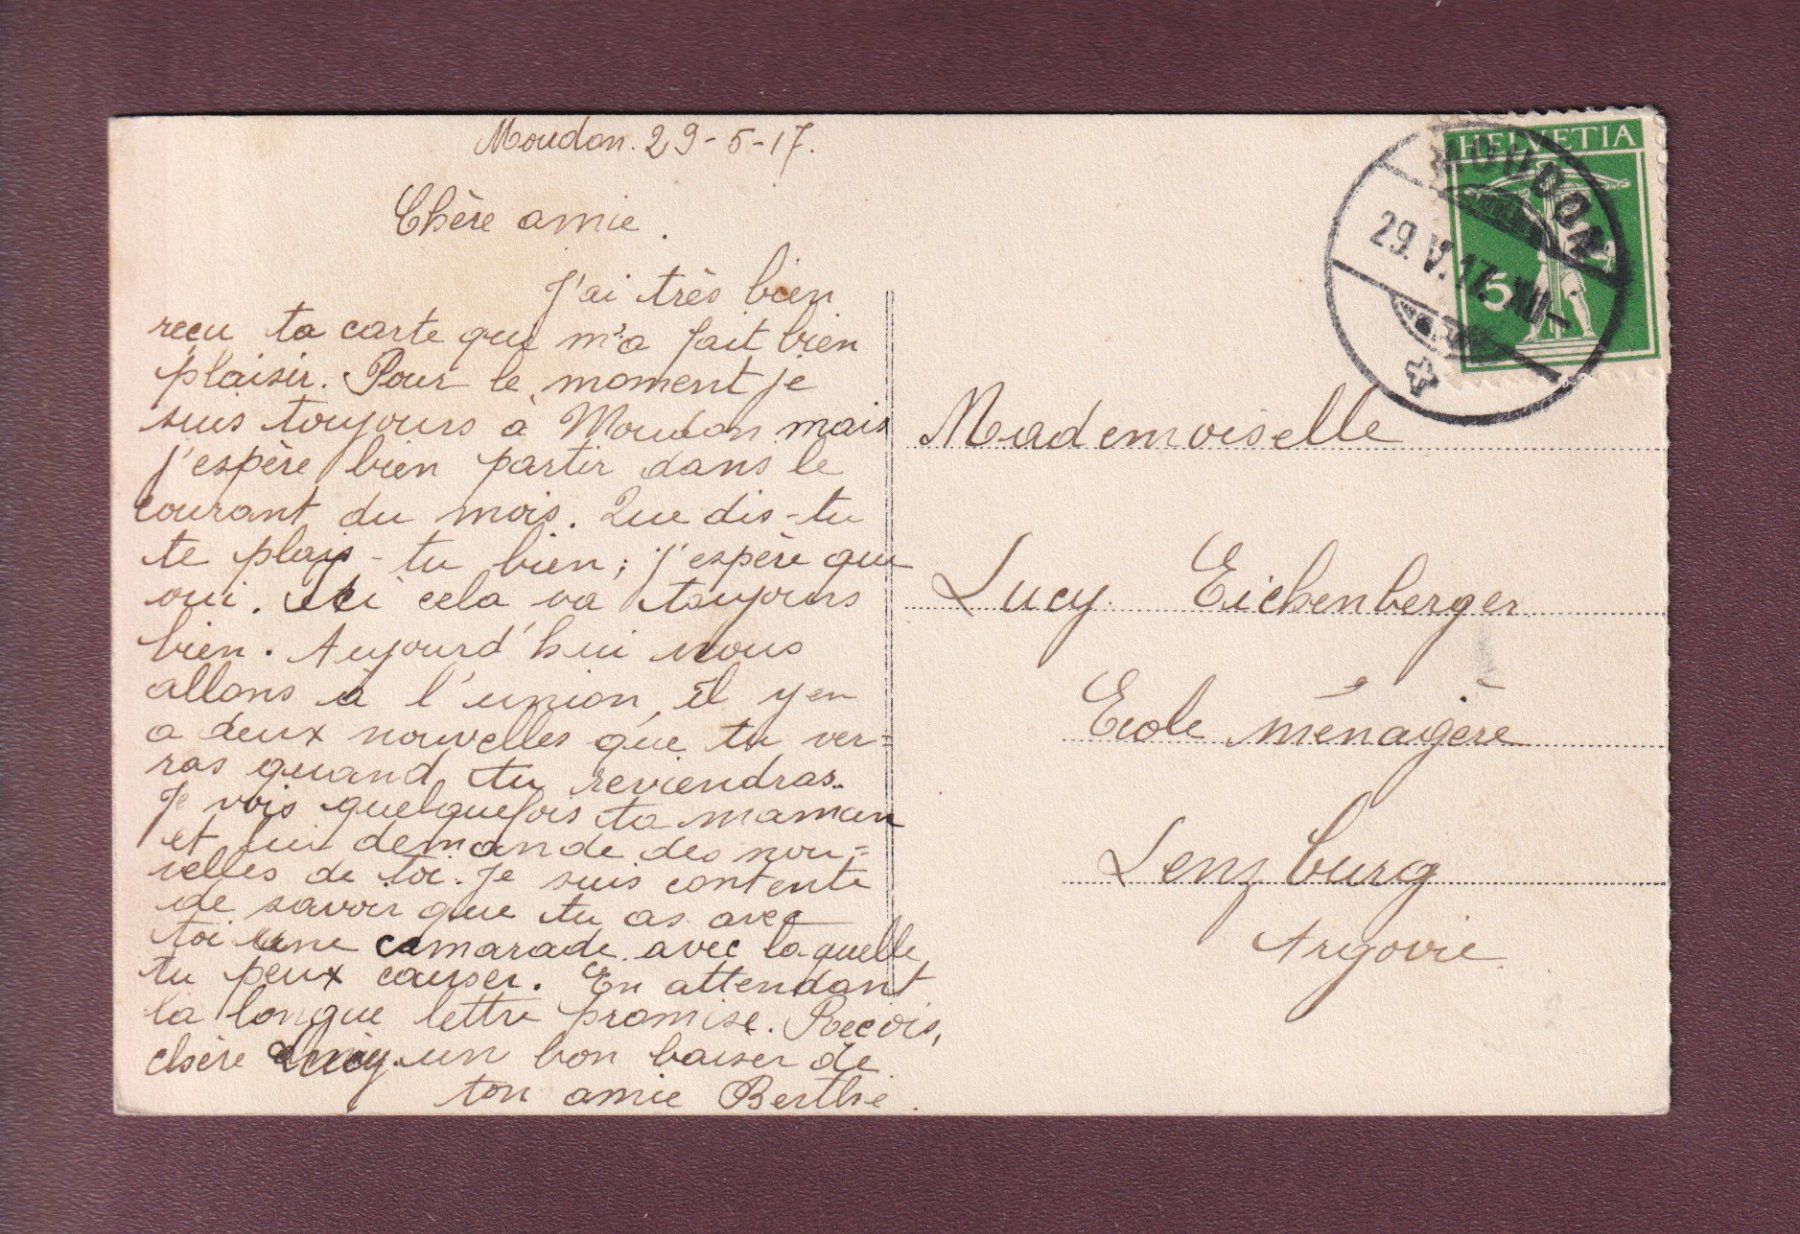 Moudon. 29-5-17.
Chère amie.
J'ai très bien
reçu ta carte qui m'a fait bien
plaisir. Pour le moment je
suis toujours à Moudon mais
j'espère bien partir dans le
courant du mois. Que dis-tu
te plais-tu bien; j'espère que
oui. Ici cela va toujours
bien. Aujourd'hui nous
allons à l'union, il y en
a deux nouvelles que tu ver=
ras quand tu reviendras.
Je vois quelquefois ta maman
et lui demande des nou=
velles de toi. Je suis contente
de savoir que tu as avec
toi une camarade avec laquelle
tu peux causer. En attendant
la longue lettre promise. Reçois,
chère Lucy un bon baiser de
ton amie Berthe.
HELVETIA
5
MOUDON
29.V.17.XII-
Mademoiselle
Lucy Eichenberger
Ecole ménagère
Lenzburg
Argovie